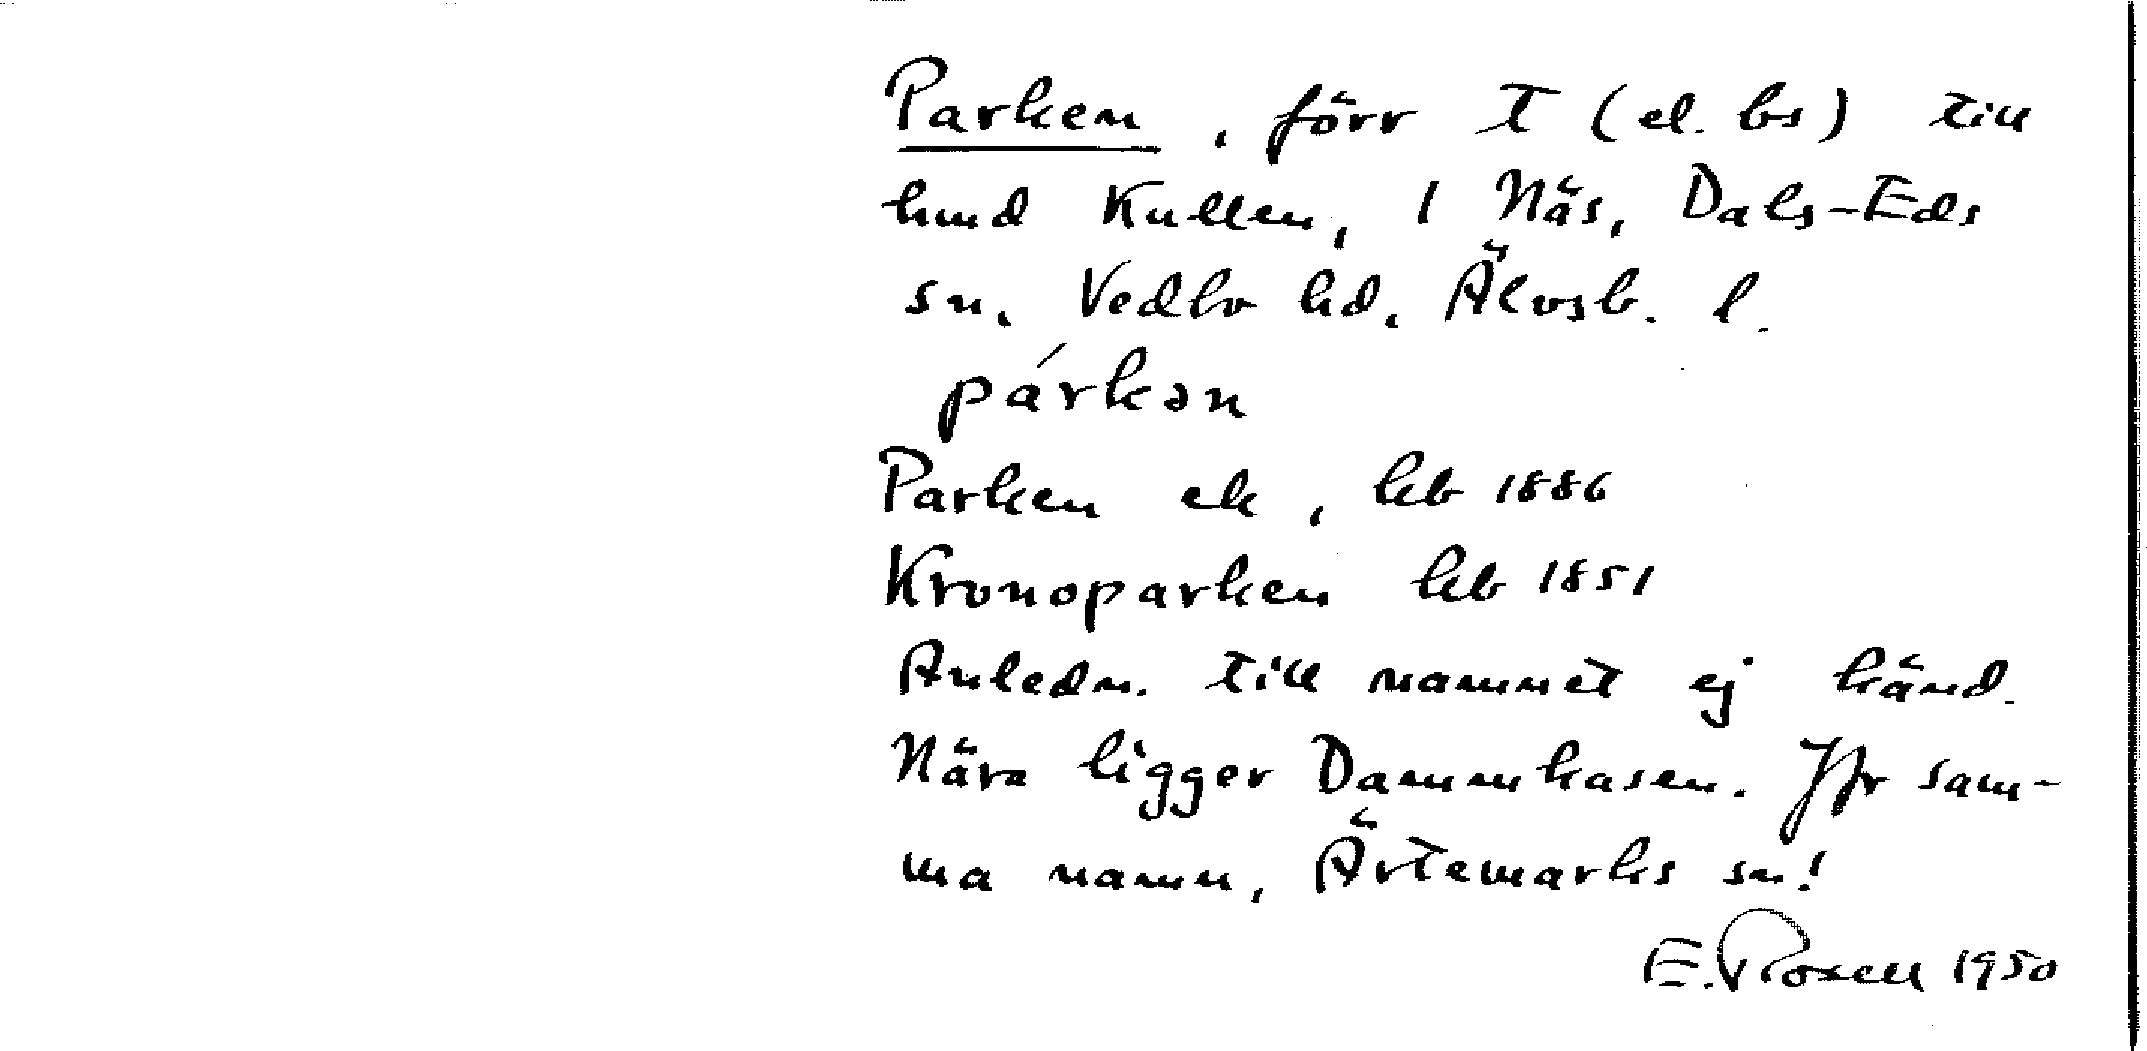 Parken, förr t (el. bs) till
hmd Kullen, 1 Näs, Dals-Eds
sn, Vedbo hd, Älvsb. l.
párkən
Parken ek, kb 1886
Kronoparken kb 1851
Anledn. till namnet ej känd.
Nära ligger Dammkasen. Jfr sam-
ma namn, Ärtemarks sn!
E. Rosell 1950